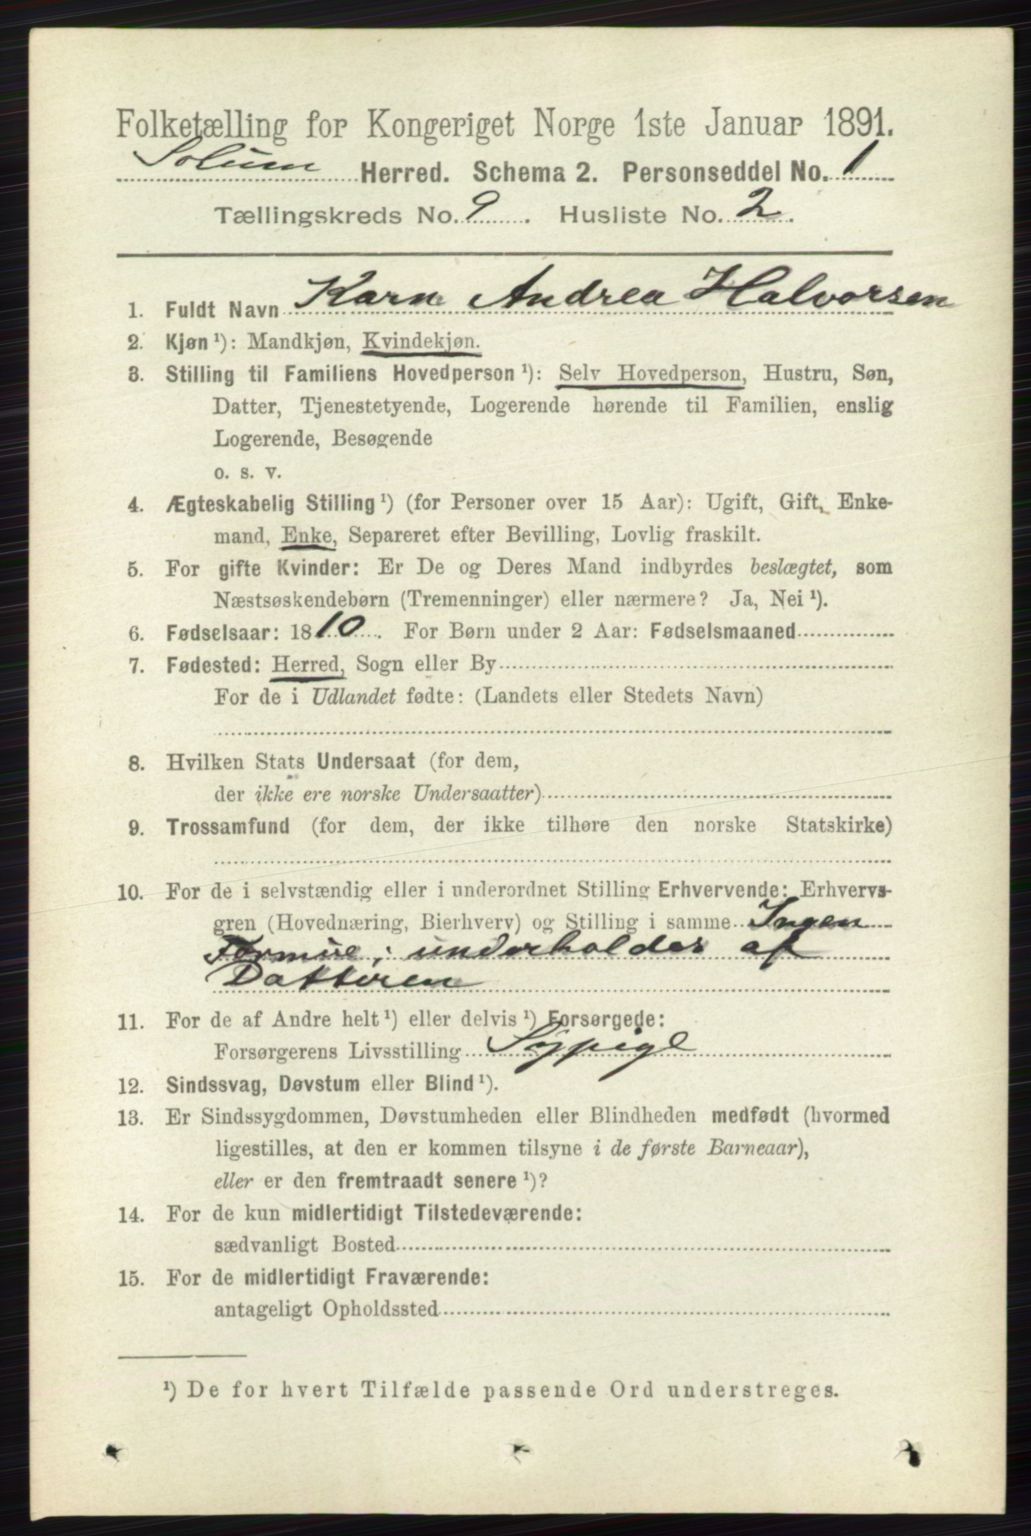 Folketælling for Kongeriget Norge 1ste Januar 1891.
Solum Herred. Schema 2. Personseddel No. 1
Tællingskreds No. 9. Husliste No. 2.
1. Fuldt Navn Karn Andrea Halvorsen
2. Kjøn ¹): Mandkjøn, Kvindekjøn.
3. Stilling til Familiens Hovedperson ¹): Selv Hovedperson, Hustru, Søn,
Datter, Tjenestetyende, Logerende hørende til Familien, enslig
Logerende, Besøgende
o. s. v.
4. Ægteskabelig Stilling ¹) (for Personer over 15 Aar): Ugift, Gift, Enke-
mand, Enke, Separeret efter Bevilling, Lovlig fraskilt.
5. For gifte Kvinder: Er De og Deres Mand indbyrdes beslægtet, som
Næstsøskendebørn (Tremenninger) eller nærmere? Ja, Nei ¹).
6. Fødselsaar: 1810. For Børn under 2 Aar: Fødselsmaaned
7. Fødested: Herred, Sogn eller By
For de i Udlandet fødte: (Landets eller Stedets Navn)
8. Hvilken Stats Undersaat (for dem,
der ikke ere norske Undersaatter)
9. Trossamfund (for dem, der ikke tilhøre den norske Statskirke)
10. For de i selvstændig eller i underordnet Stilling Erhvervende: Erhvervs-
gren (Hovednæring, Bierhverv) og Stilling i samme Ingen
Formue; underholdes af
Datteren
11. For de af Andre helt ¹) eller delvis ¹) Forsørgede:
Forsørgerens Livsstilling Sypige
12. Sindssvag, Døvstum eller Blind ¹).
13. Er Sindssygdommen, Døvstumheden eller Blindheden medfødt (hvormed
ligestilles, at den er kommen tilsyne i de første Barneaar),
eller er den fremtraadt senere ¹)?
14. For de kun midlertidigt Tilstedeværende:
sædvanligt Bosted
15. For de midlertidigt Fraværende:
antageligt Opholdssted
¹) De for hvert Tilfælde passende Ord understreges.